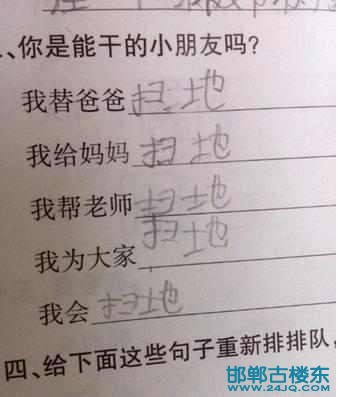 、你是能干的小朋友吗?
我替爸爸扫地
我给妈妈扫地
我帮老师扫地
我为大家扫地
我会扫地
四、给下面这些句子重新排排队,
邯郸古楼东
www.24JQ.com